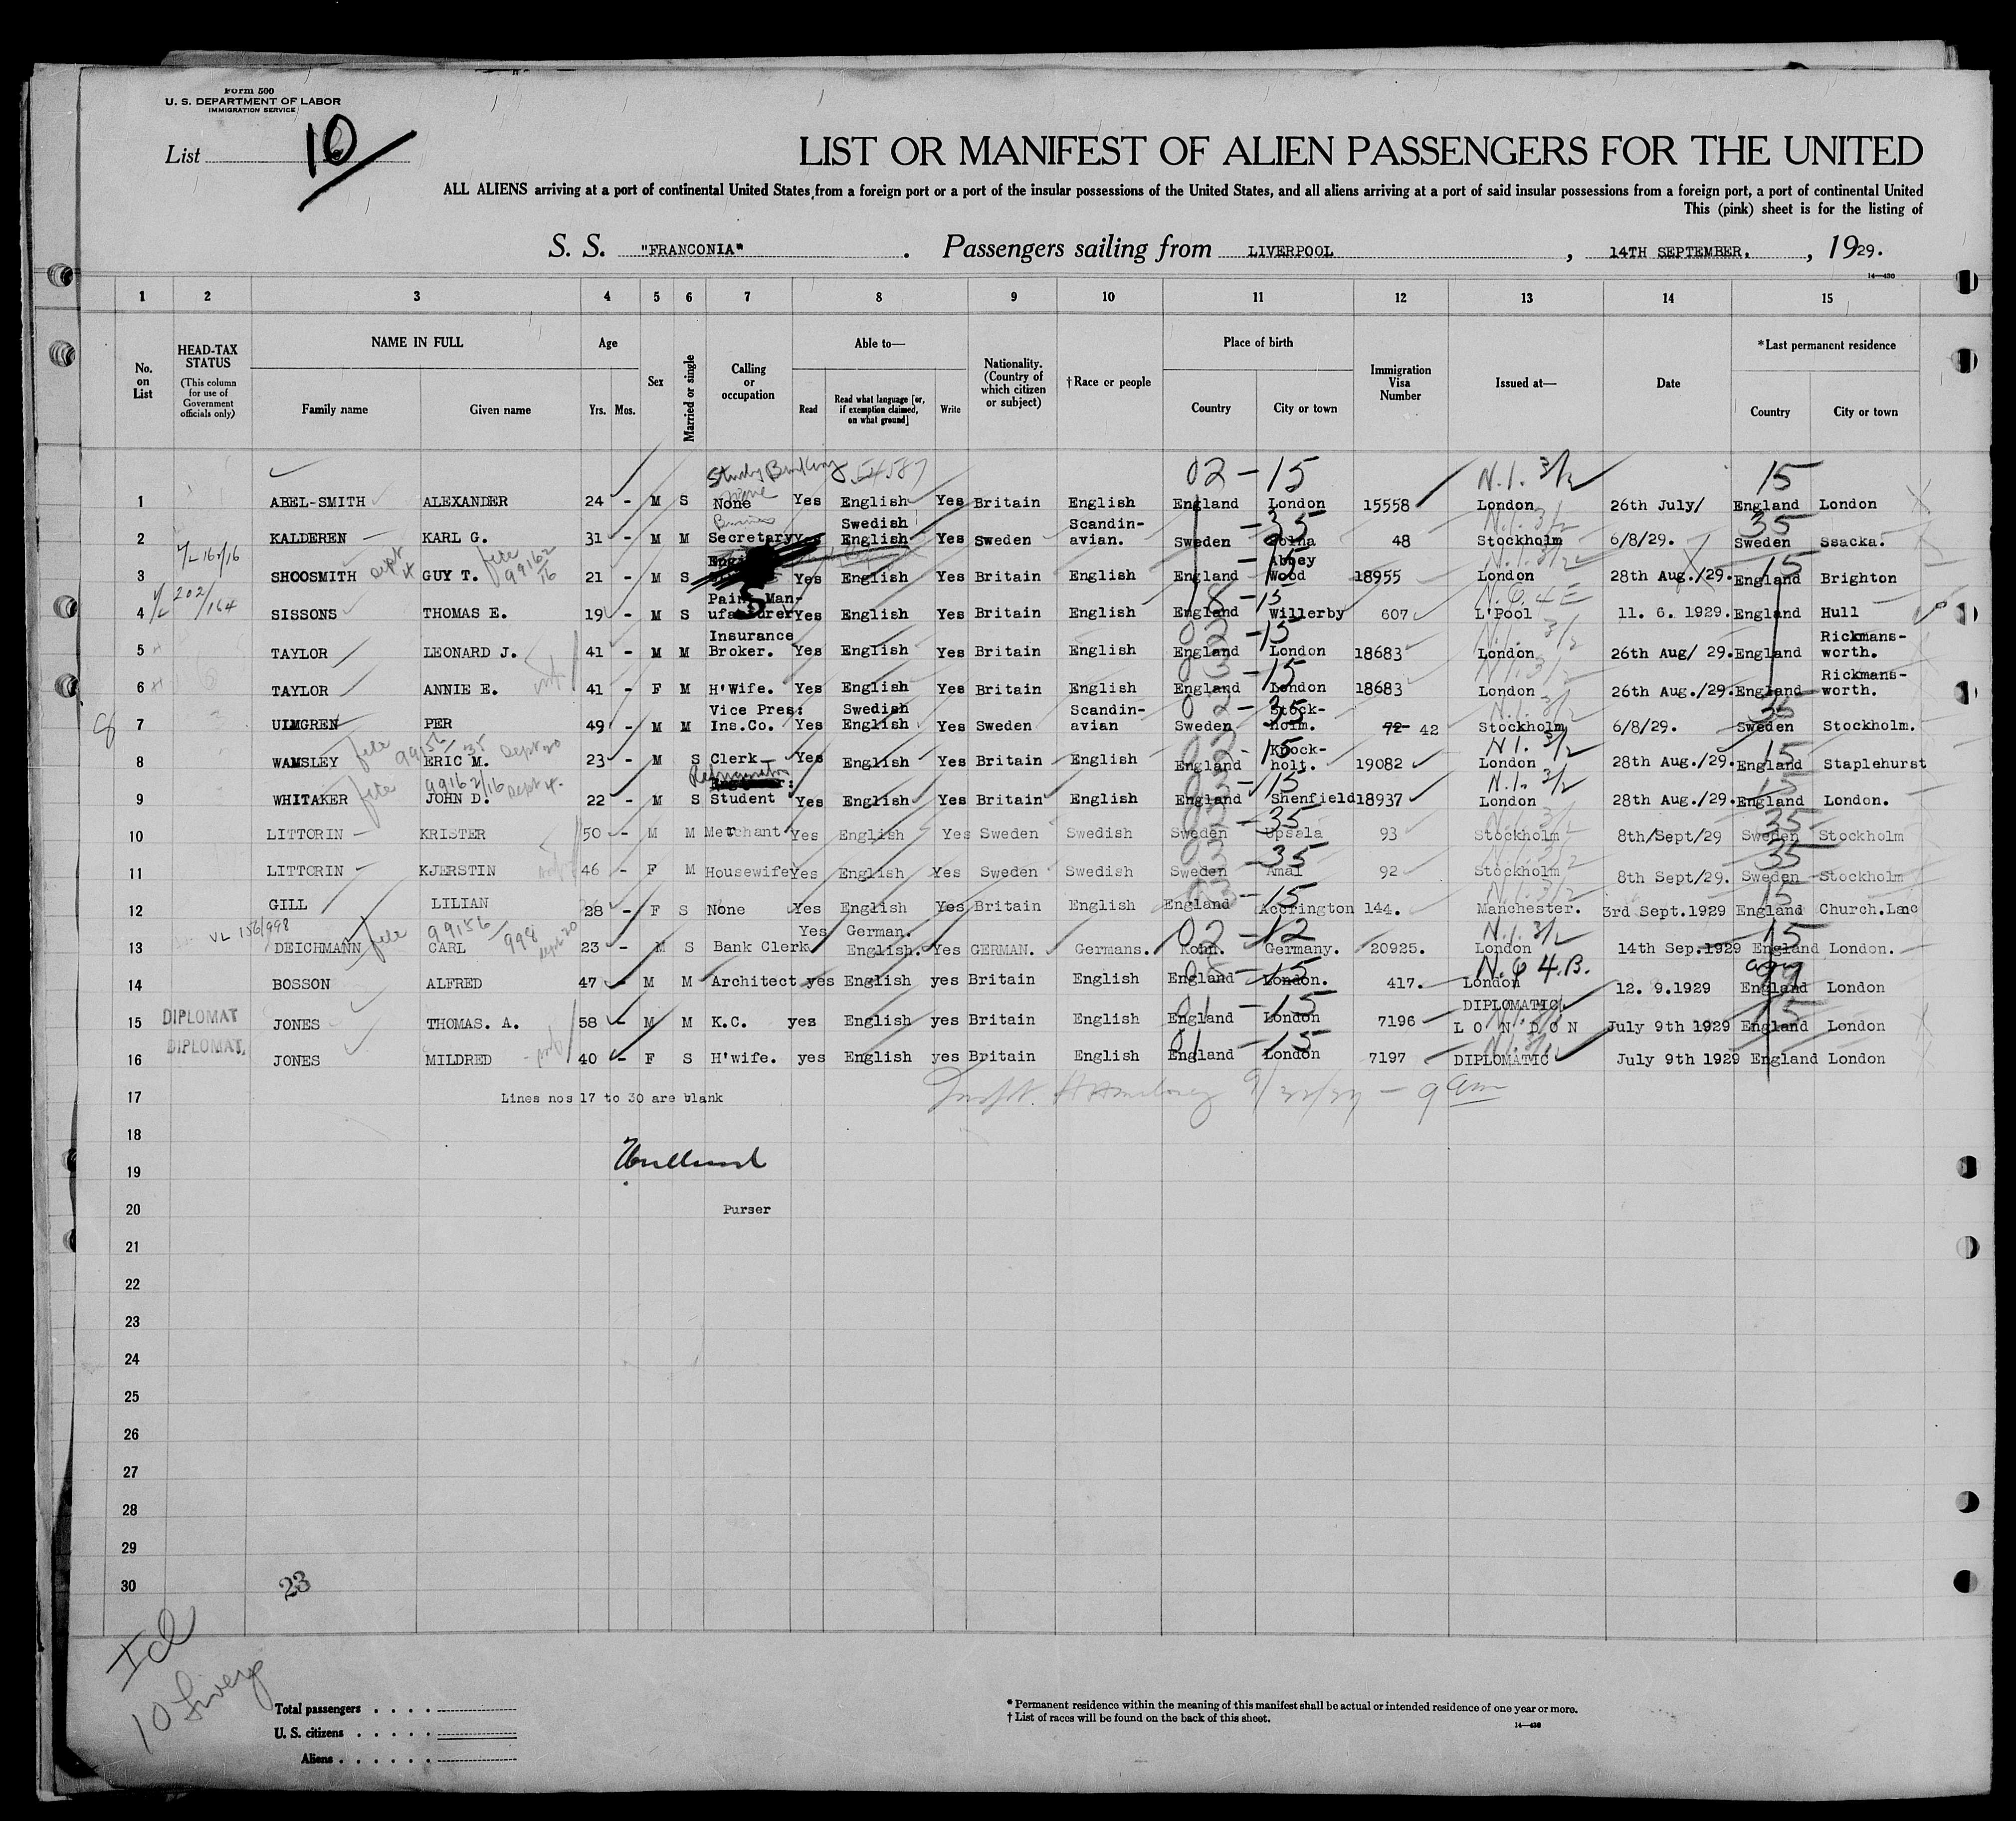 Form 500
U. S. DEPARTMENT OF LABOR
IMMIGRATION SERVICE
List 10
LIST OR MANIFEST OF ALIEN PASSENGERS FOR THE UNITED
ALL ALIENS arriving at a port of continental United States from a foreign port or a port of the insular possessions of the United States, and all aliens arriving at a port of said insular possessions from a foreign port, a port of continental United
This (pink) sheet is for the listing of
S. S. "FRANCONIA" . Passengers sailing from LIVERPOOL , 14TH SEPTEMBER, , 1929.
14—430
1 2 3 4 5 6 7 8 9 10 11 12 13 14 15
No. on List
HEAD-TAX STATUS (This column for use of Government officials only)
NAME IN FULL
Family name Given name
Age
Yrs. Mos.
Sex
Married or single
Calling or occupation
Able to—
Read Read what language [or, if exemption claimed, on what ground] Write
Nationality. (Country of which citizen or subject)
†Race or people
Place of birth
Country City or town
Immigration Visa Number
Issued at—
Date
*Last permanent residence
Country City or town
Study Banking 02 - 15 N.I. 3/2 15
1 ABEL-SMITH ALEXANDER 24 - M S None Yes English Yes Britain English England London 15558 London 26th July/ England London
2 KALDEREN KARL G. 31 - M M Secretary Yes Swedish English Yes Sweden Scandin-avian. Sweden 48 Stockholm 6/8/29. Sweden Ssacka.
3 SHOOSMITH GUY T. 21 - M S Yes English Yes Britain English England Abbey Wood 18955 London 28th Aug./29. England Brighton
4 SISSONS THOMAS E. 19 - M S Paint Man-ufacturer Yes English Yes Britain English England Willerby 607 L'Pool 11. 6. 1929. England Hull
5 TAYLOR LEONARD J. 41 - M M Insurance Broker. Yes English Yes Britain English England London 18683 London 26th Aug/ 29. England Rickmans-worth.
6 TAYLOR ANNIE E. 41 - F M H'Wife. Yes English Yes Britain English England London 18683 London 26th Aug./29. England Rickmans-worth.
7 ULMGREN PER 49 - M M Vice Pres: Ins.Co. Yes Swedish English Yes Sweden Scandin-avian Sweden Stock-holm. 72 42 Stockholm 6/8/29. Sweden Stockholm.
8 WAMSLEY ERIC M. 23 - M S Clerk Yes English Yes Britain English England Knock-holt. 19082 London 28th Aug./29. England Staplehurst
9 WHITAKER JOHN D. 22 - M S Refrigeration Student Yes English Yes Britain English England Shenfield 18937 London 28th Aug./29. England London.
10 LITTORIN KRISTER 50 - M M Merchant Yes English Yes Sweden Swedish Sweden Upsala 93 Stockholm 8th/Sept/29 Sweden Stockholm
11 LITTORIN KJERSTIN 46 - F M Housewife Yes English Yes Sweden Swedish Sweden Amal 92 Stockholm 8th Sept/29. Sweden Stockholm
12 GILL LILIAN 28 - F S None Yes English Yes Britain English England Accrington 144. Manchester. 3rd Sept.1929 England Church.Lanc
VL 156/998
13 DEICHMANN CARL 23 - M S Bank Clerk Yes German. English. Yes GERMAN. Germans. Kohn. Germany. 20925. London 14th Sep.1929 England London.
14 BOSSON ALFRED 47 - M M Architect yes English yes Britain English England London. 417. London 12. 9.1929 England London
15 DIPLOMAT JONES THOMAS. A. 58 - M M K.C. yes English yes Britain English England London 7196 DIPLOMATIC L O N D O N July 9th 1929 England London
16 DIPLOMAT. JONES MILDRED 40 - F S H'wife. yes English yes Britain English England London 7197 DIPLOMATIC July 9th 1929 England London
17 Lines nos 17 to 30 are blank
18
19
20 Purser
21
22
23
24
25
26
27
28
29
30 23
Total passengers
U. S. citizens
Aliens
* Permanent residence within the meaning of this manifest shall be actual or intended residence of one year or more.
† List of races will be found on the back of this sheet.
14—430